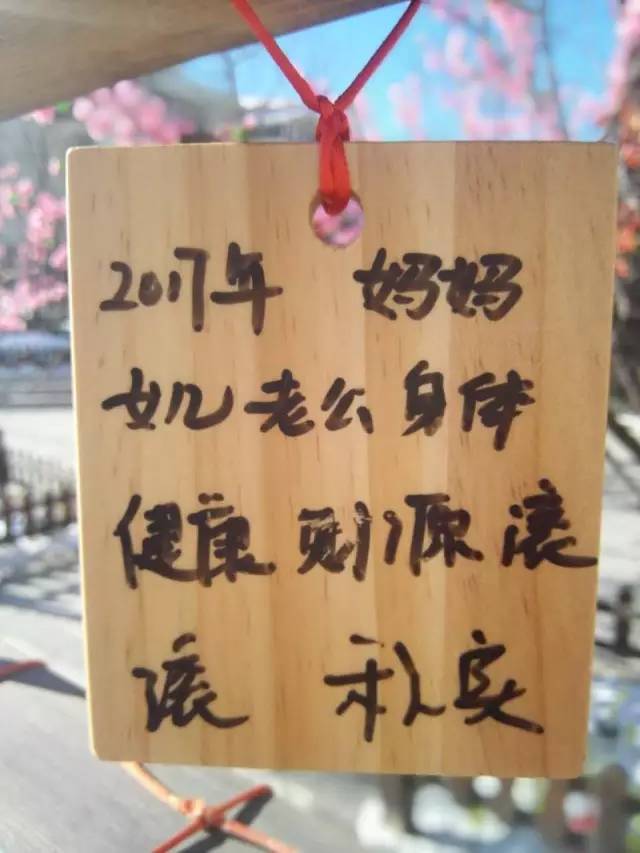 2017年 妈妈
女儿老公身体
健康 财源滚
滚 秋实